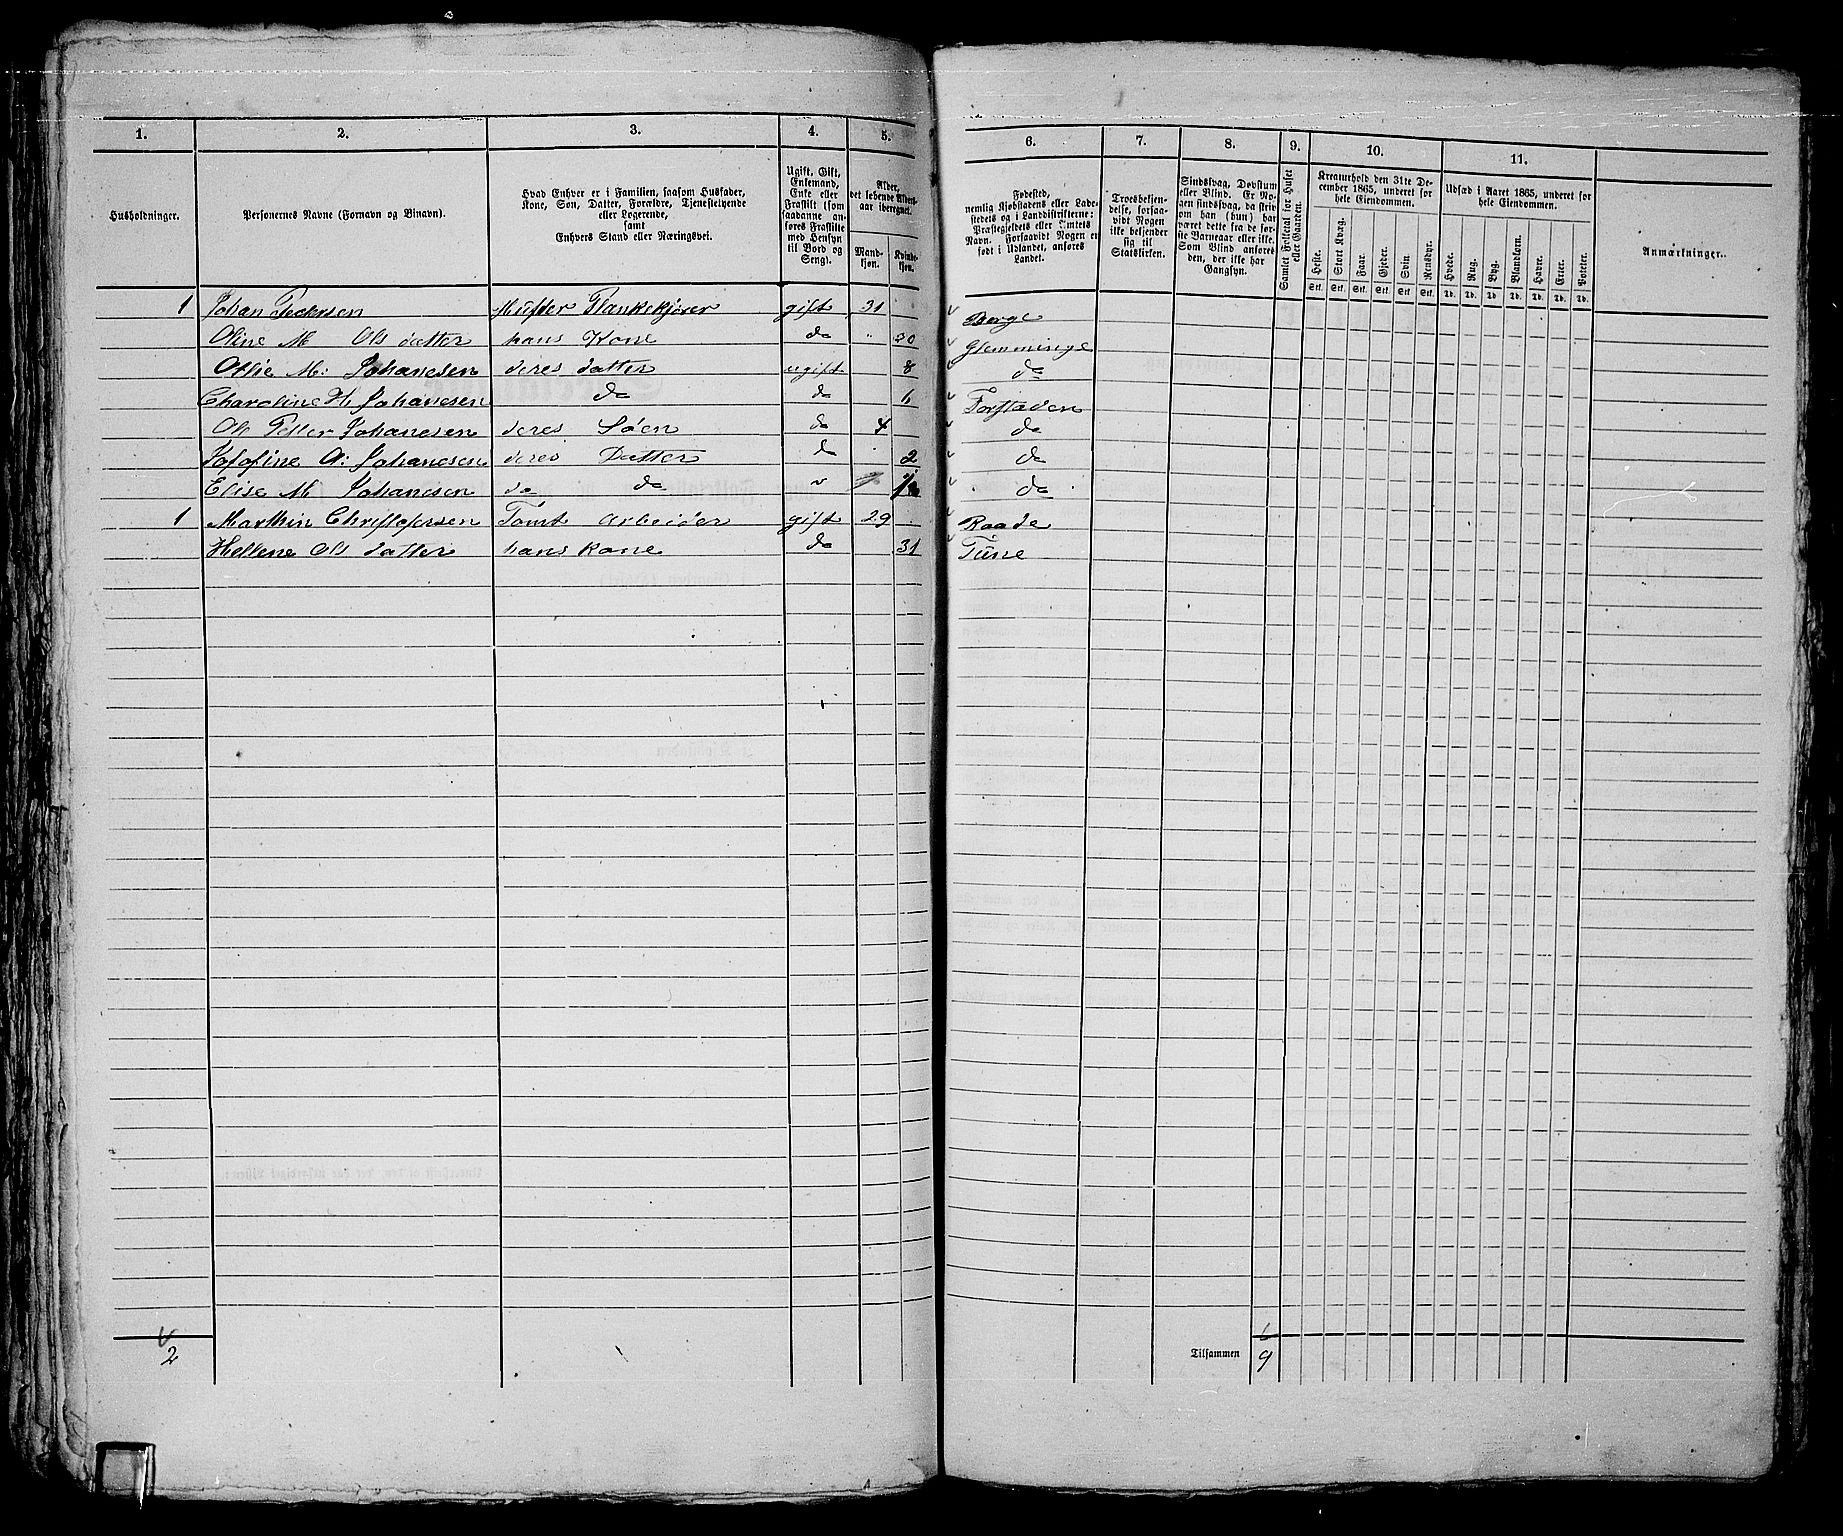 1. 2. 3. 4. 5. 6. 7. 8. 9. 10. 11.
Husholdninger.
Personernes Navne (Fornavn og Binavn).
Hvad Enhver er i Familien, saasom Husfader,
Kone, Søn, Datter, Forældre, Tjenestetyende
eller Logerende,
samt
Enhvers Stand eller Næringsvei.
Ugift, Gift,
Enkemand,
Enke eller
Fraskilt (som
saadanne an-
føres Fraskilte
med Hensyn
til Bord og
Seng).
Alder,
det løbende Alders-
aar iberegnet.
Mand-
kjøn.
Kvinde-
kjøn.
Fødested,
nemlig Kjøbstadens eller Lade-
stedets og i Landdistrikterne:
Præstegjeldets eller Amtets
Navn. Forsaavidt Nogen er
født i Udlandet, anføres
Landet.
Troesbekjen-
delse, forsaa-
vidt Nogen
ikke bekjender
sig til
Statskirken.
Sindssvag, Døvstum
eller Blind. Er No-
gen sindssvag, da skriv
om han (hun) har
været dette fra de før-
ste Barneaar eller ikke.
Som Blind anføres
den, der ikke har
Gangsyn.
Samlet Folketal for Huset
eller Gaarden.
Kreaturhold den 31te De-
cember 1865, underet for
hele Eiendommen.
Heste. Stort Kvæg. Faar. Gjeder. Svin. Rensdyr.
Stk. Stk. Stk. Stk. Stk. Stk.
Udsæd i Aaret 1865, underet for
hele Eiendommen.
Hvede. Rug. Byg. Blandkorn. Havre. Erter. Poteter.
Td. Td. Td. Td. Td. Td. Td.
Anmærkninger.
1 Johan Pedersen Husfder Plankekjører gift 31 Borge
Oline M Ols datter hans Kone do 30 Glemminge
Othie M: Johanesen deres datter ugift 8 do
Charoline H Johanesen do do 6 Forstaden
Ole Petter Johanesen deres Søen do 4 do
Josofine A: Johanesen deres Datter do 2 do
Elise M Johanesen do do do
1 Marthin Christofersen Tomt Arbeider gift 29 Raade
Hellene Ols datter hans Kone do 31 Tune
2 Tilsammen 9